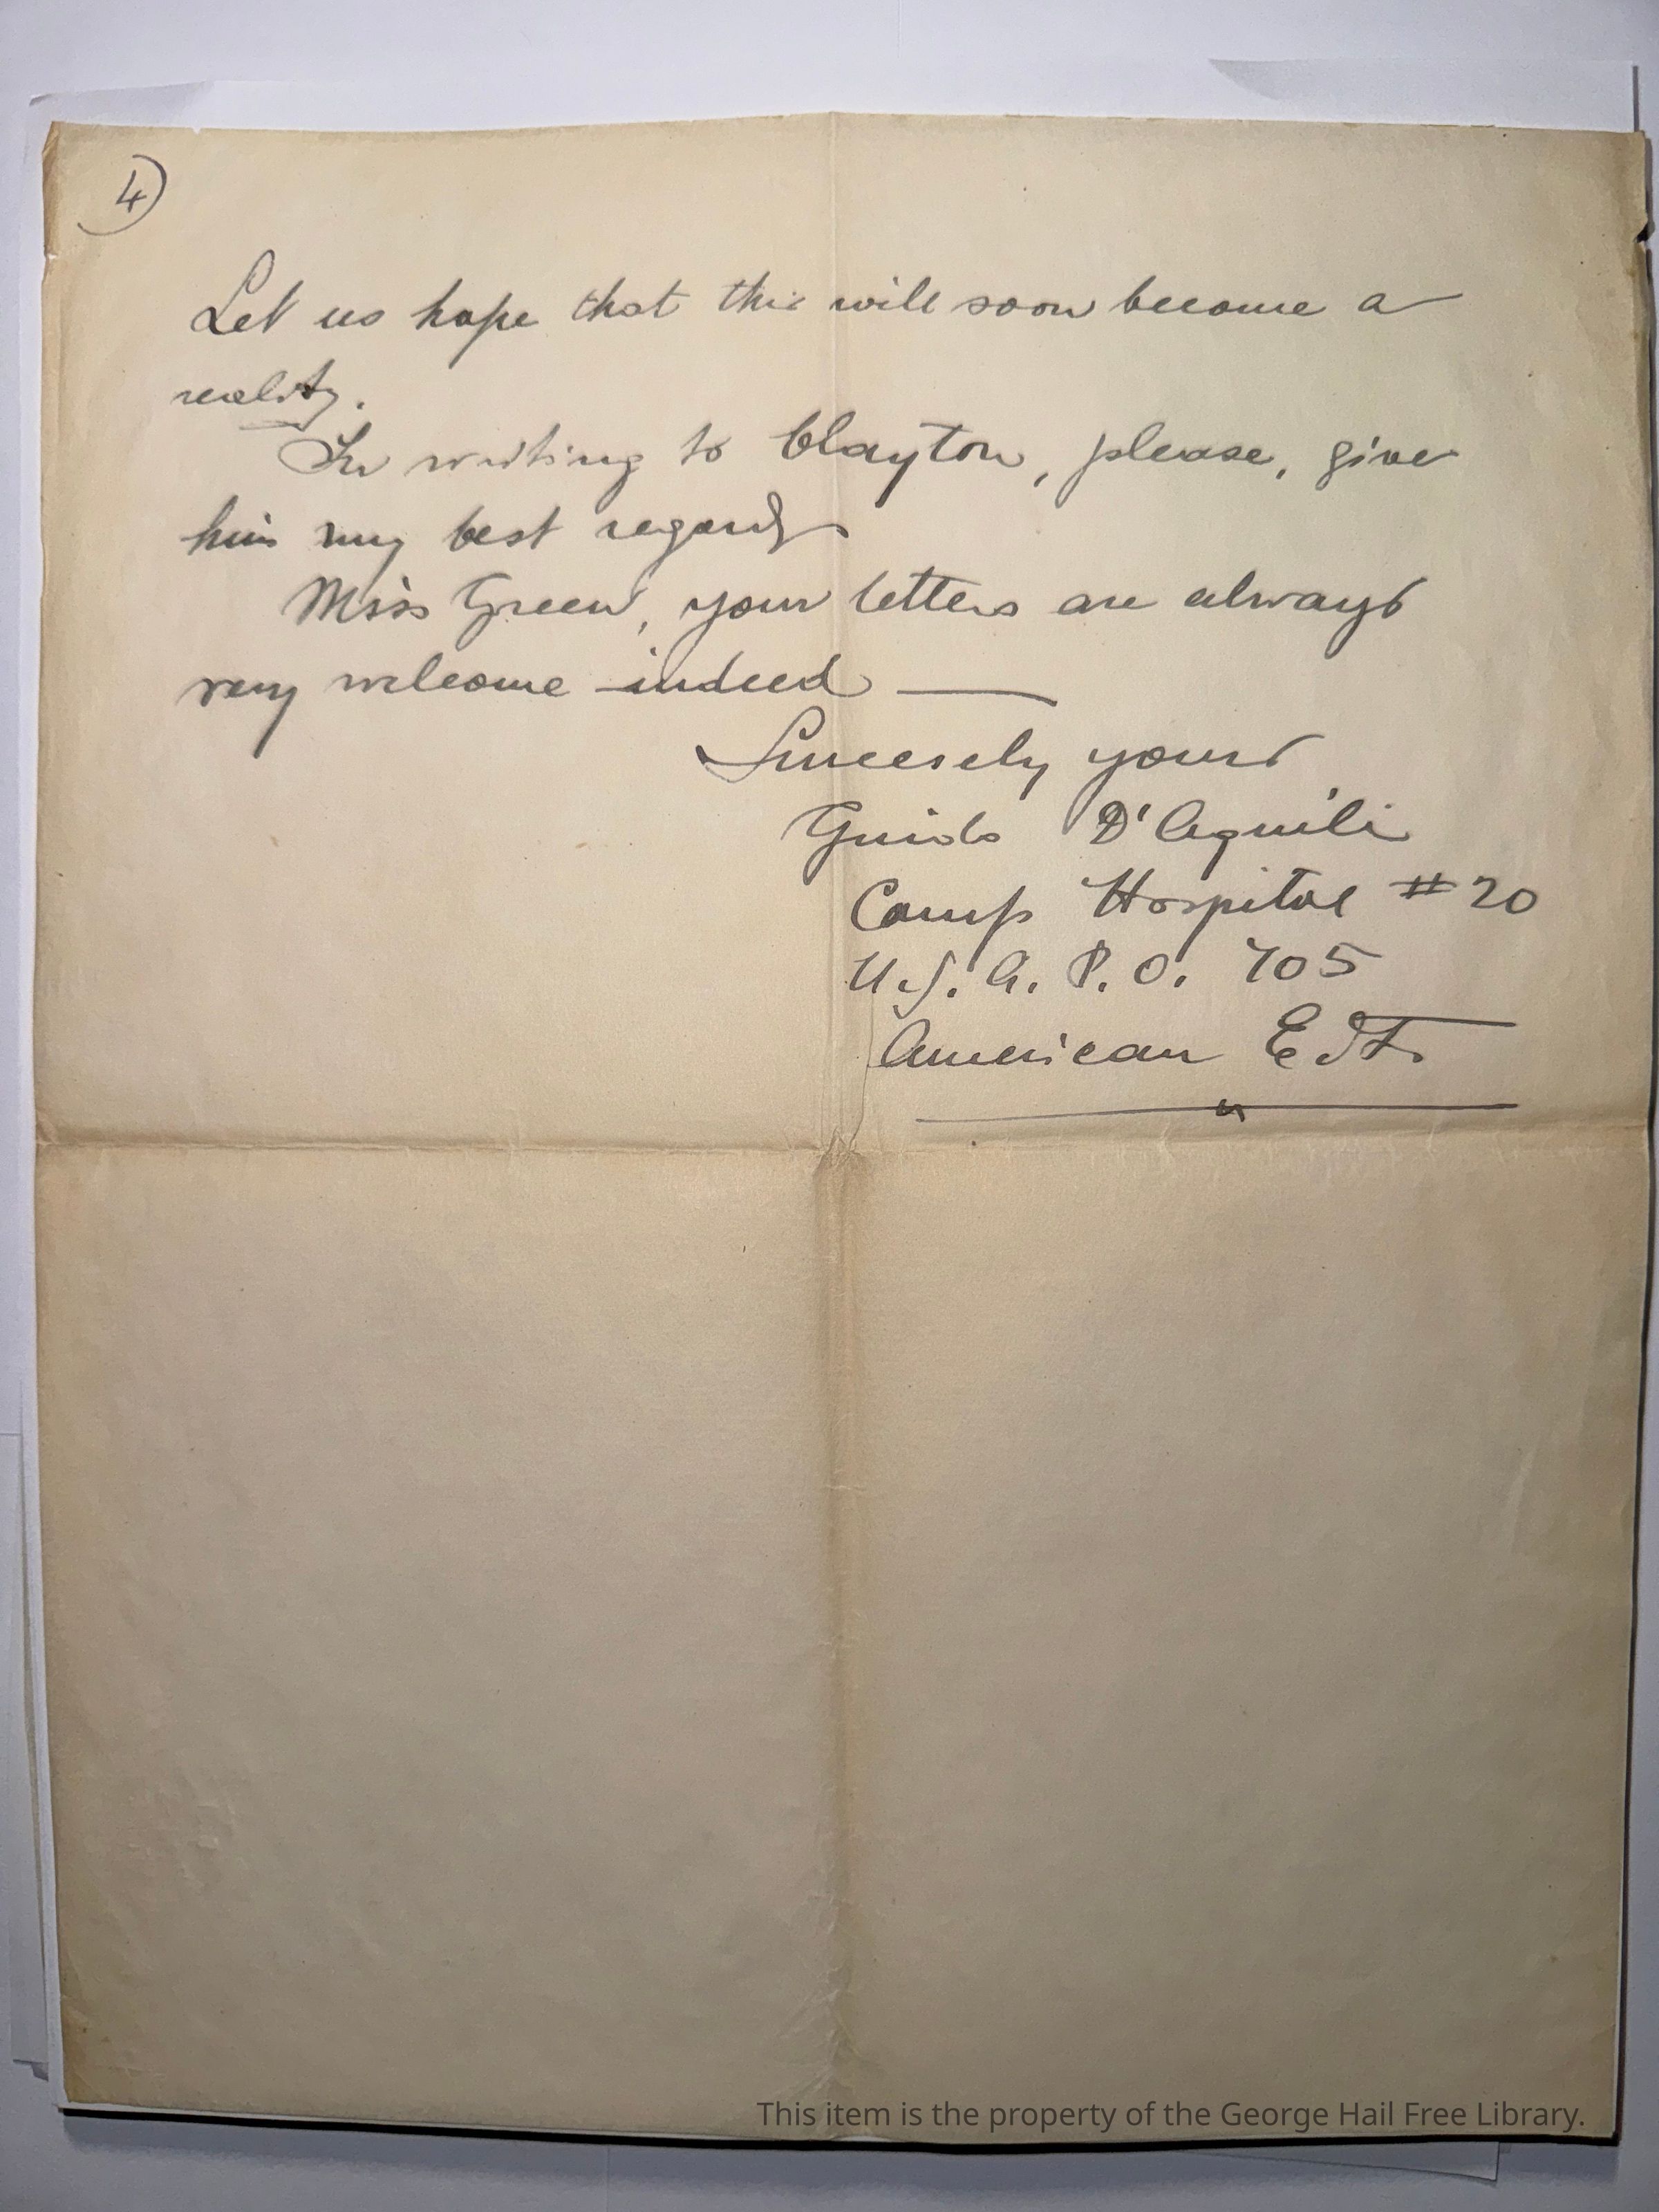 4
Let us hope that this will soon become a
reality.
In writing to Clayton, please, give
him my best regards
Miss Green, your letters are always
very welcome indeed —
Sincerely yours
Guido D'Aquili
Camp Hospital #20
U.S.A. P.O. 705
American E.F.
This item is the property of the George Hail Free Library.